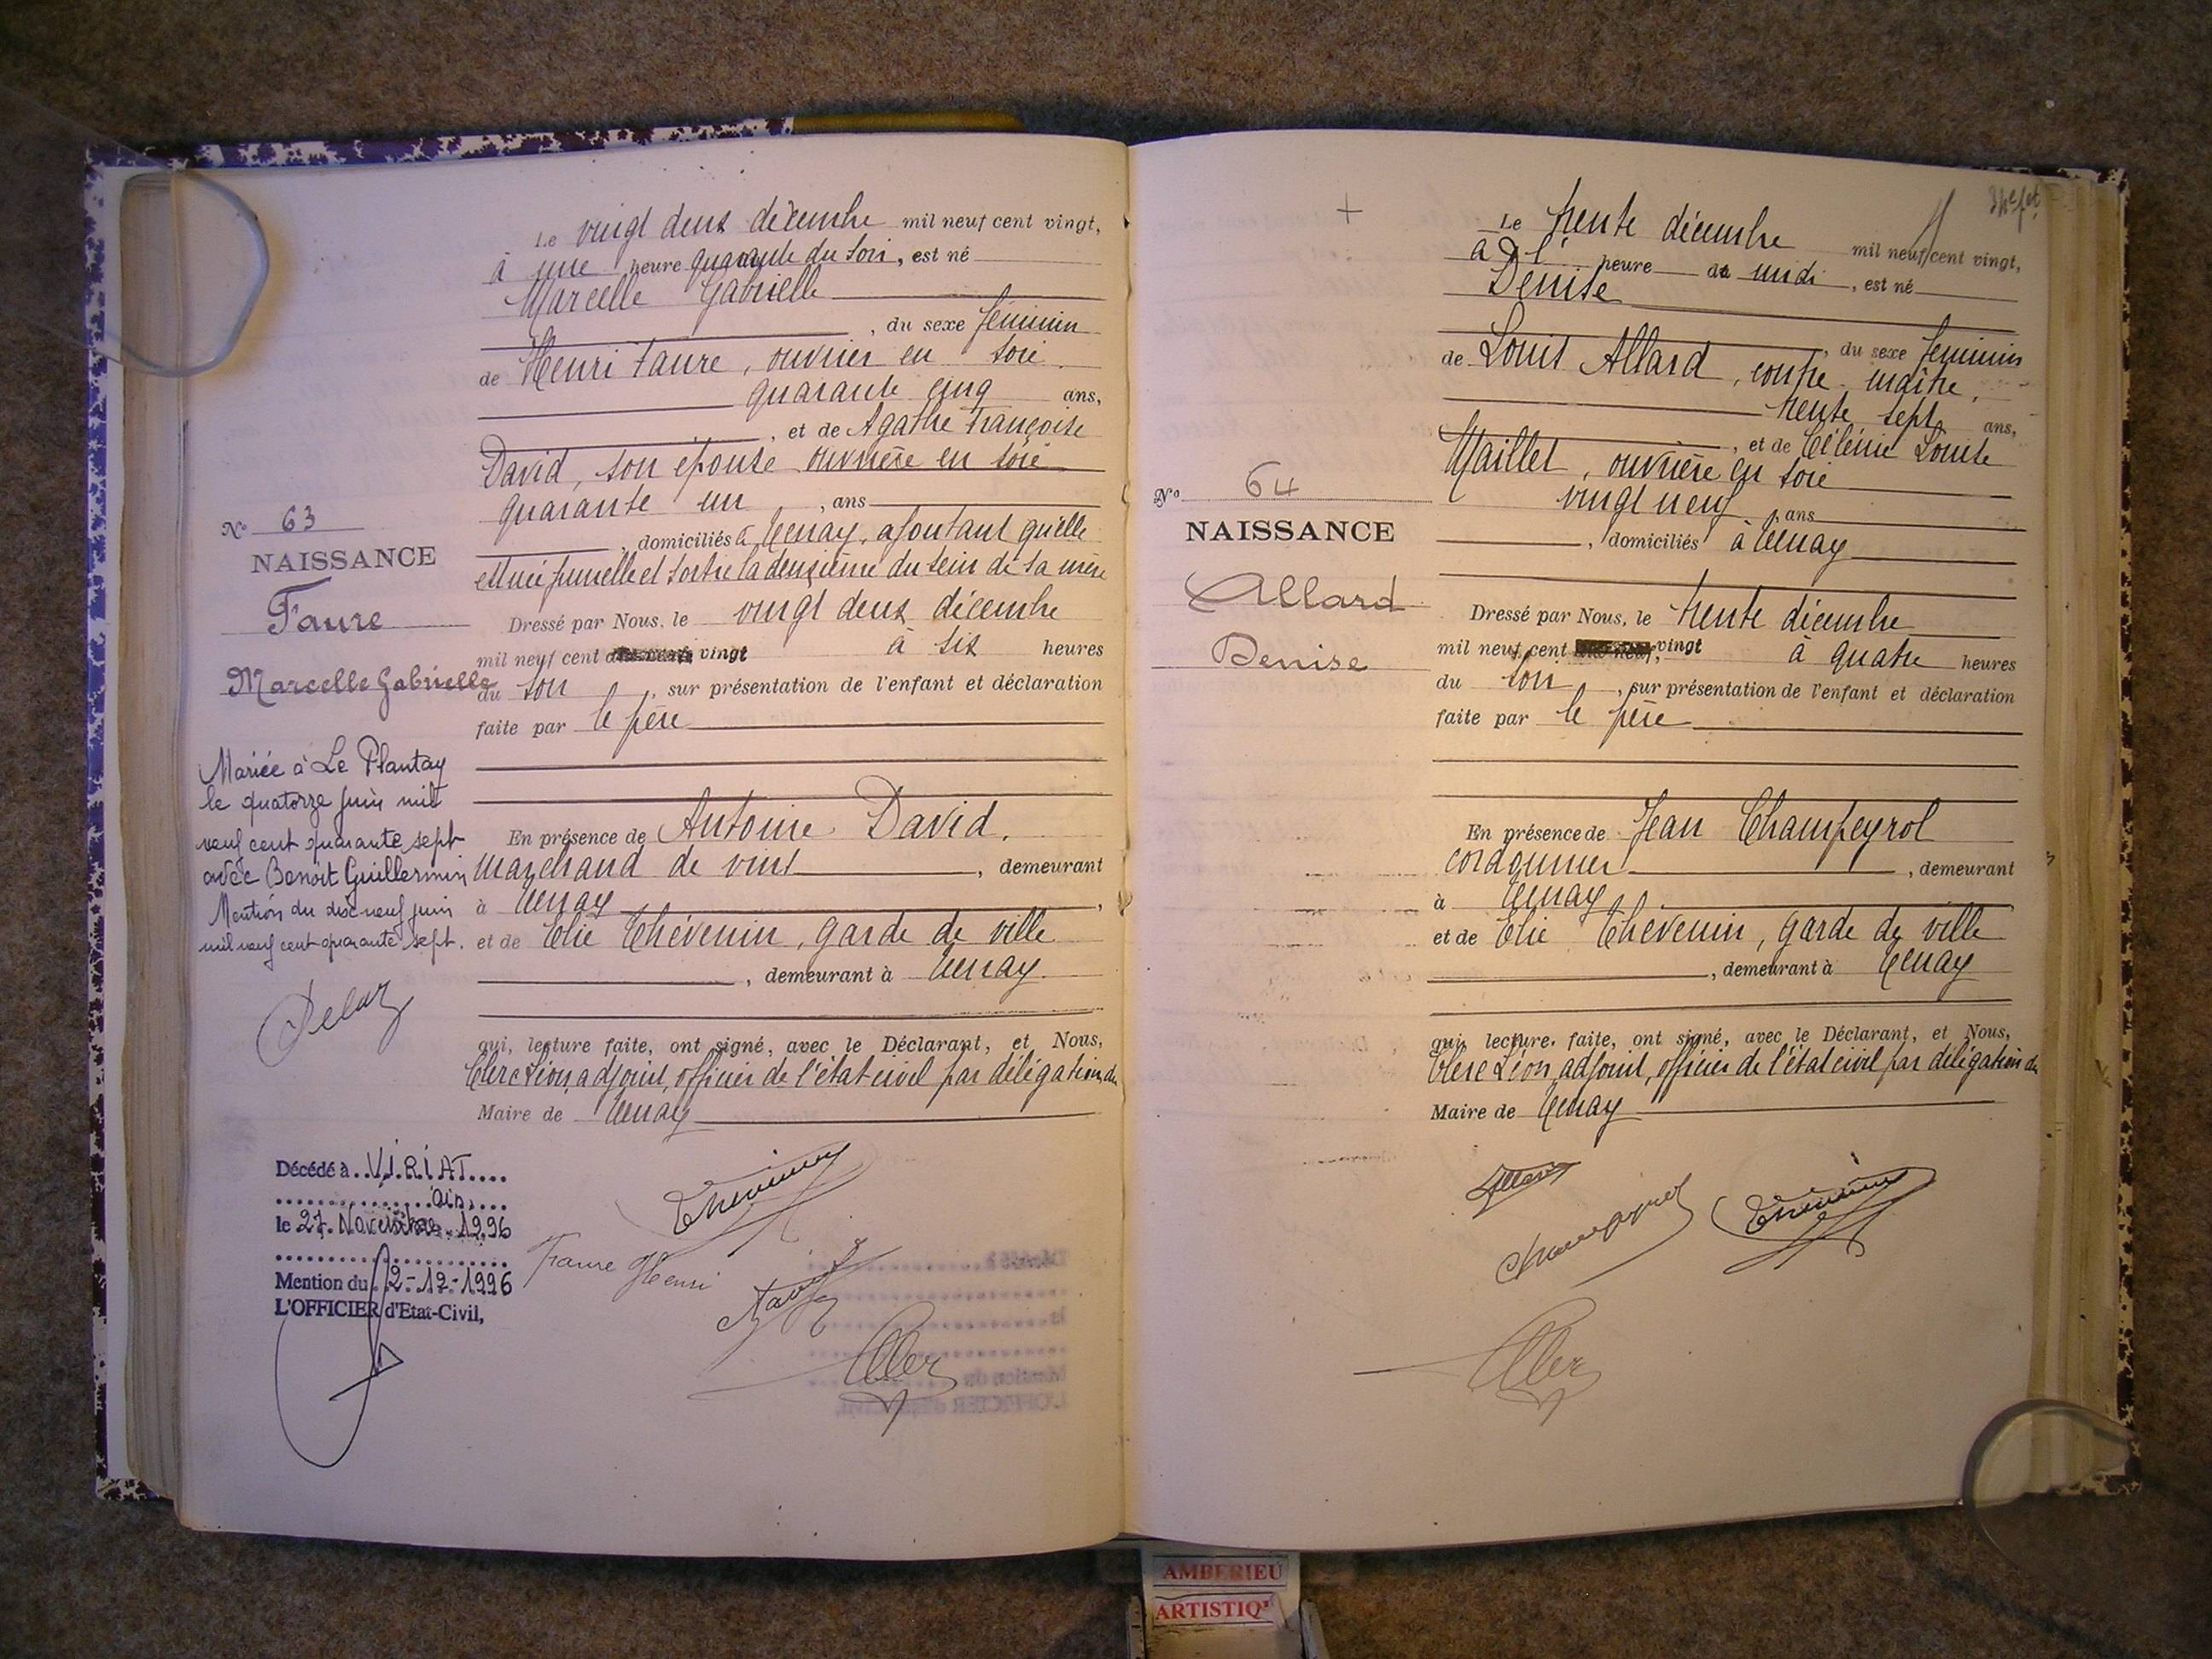 Le vingt deux décembre mil neuf cent vingt,
à une heure quarante du soir, est né
Marcelle Gabrielle
, du sexe féminin
de Henri Faure, ouvrier en soie
quarante cinq ans,
, et de Agathe Françoise
David, son épouse ouvrière en soie
quarante un , ans
, domiciliés à Tenay, ajoutant qu'elle
est née jumelle et sortie la deuxième du sein de sa mère
Dressé par Nous, le vingt deux décembre
mil neuf cent vingt à six heures
du soir , sur présentation de l'enfant et déclaration
faite par le père
En présence de Antoine David,
marchand de vins , demeurant
à Tenay ,
et de Elie Thévenin, garde de ville
, demeurant à Tenay
qui, lecture faite, ont signé, avec le Déclarant, et Nous,
Clerc Léon, adjoint, officier de l'état civil par délégation du
Maire de Tenay
Thévenin
Faure Henri
David
Clerc
N° 63
NAISSANCE
Faure
Marcelle Gabrielle
Mariée à Le Plantay
le quatorze juin mil
neuf cent quarante sept
avec Benoit Guillermin
Mention du dix neuf juin
mil neuf cent quarante sept.
Décédé à VIRIAT
ain
le 27 Novembre 1996
Mention du 2-12-1996
L'OFFICIER d'Etat-Civil,
Le trente décembre mil neuf cent vingt,
à l' heure de midi , est né
Denise
, du sexe féminin
de Louis Allard, contre maître,
trente sept ans,
, et de Célénie Louise
Maillet, ouvrière en soie
vingt neuf , ans
, domiciliés à Tenay
Dressé par Nous, le trente décembre
mil neuf cent vingt à quatre heures
du soir , sur présentation de l'enfant et déclaration
faite par le père
En présence de Jean Champeyrol
cordonnier , demeurant
à Tenay
et de Elie Thévenin, garde de ville
, demeurant à Tenay
qui, lecture faite, ont signé, avec le Déclarant, et Nous,
Clerc Léon, adjoint, officier de l'état civil par délégation du
Maire de Tenay
Allard
Champeyrol
Thévenin
Clerc
N° 64
NAISSANCE
Allard
Denise
AMBERIEU
ARTISTIQ